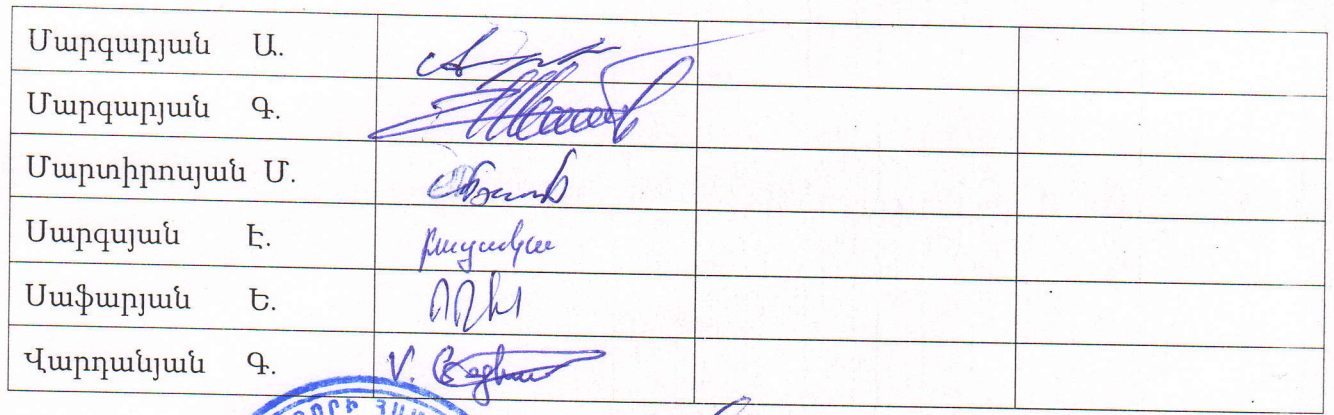 Մարգարյան Ա.
Մարգարյան Գ.
Մարտիրոսյան Մ.
Սարգսյան Է. բացակա
Սաֆարյան Ե.
Վարդանյան Գ.